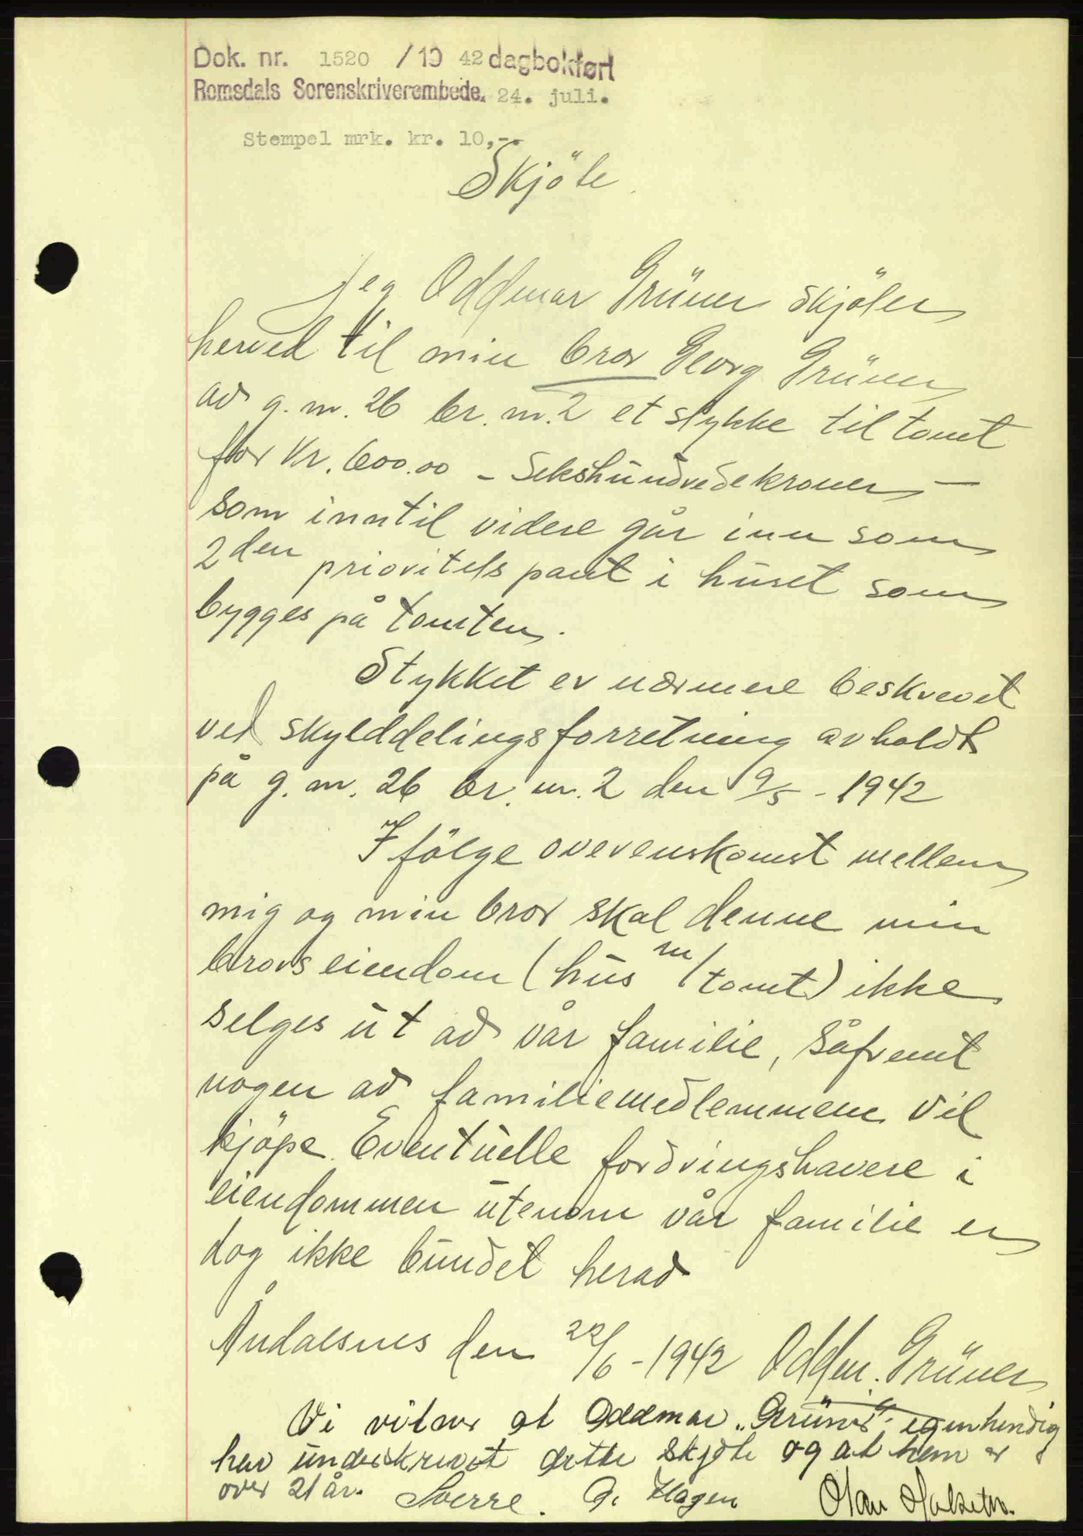 Dok. nr. 1520 / 19 42 dagbokført
Romsdals Sorenskriverembede. 24. juli.
Stempel mrk. kr. 10,-.
Skjöte.
Jeg Oddmar Grüner skjöter
herved til min bror Georg Grüner
av g. nr. 26 br. nr. 2 et stykke til tomt
for Kr. 600.00 – Sekshundredekroner –
som inntil videre går inn som
2den prioritets pant i huset som
bygges på tomten.
Stykket er nærmere beskrevet
ved skylddelingsforretning avholdt
på g. nr. 26 br. nr. 2 den 9/5 - 1942
Ifölge overenskomst mellem
mig og min bror skal denne min
brors eiendom (hus m/tomt) ikke
selges ut av vår familie, såfremt
nogen av familiemedlemmene vil
kjöpe. Eventuelle fordringshavere i
eiendommen utenom vår familie er
dog ikke bundet herav
Åndalsnes den 22/6 - 1942 Oddm. Grüner
Vi vitner at Oddmar „Grüner" egenhendig
har underskrevet dette skjöte og at han er
over 21 år. Sverre. O. Hagen Olav